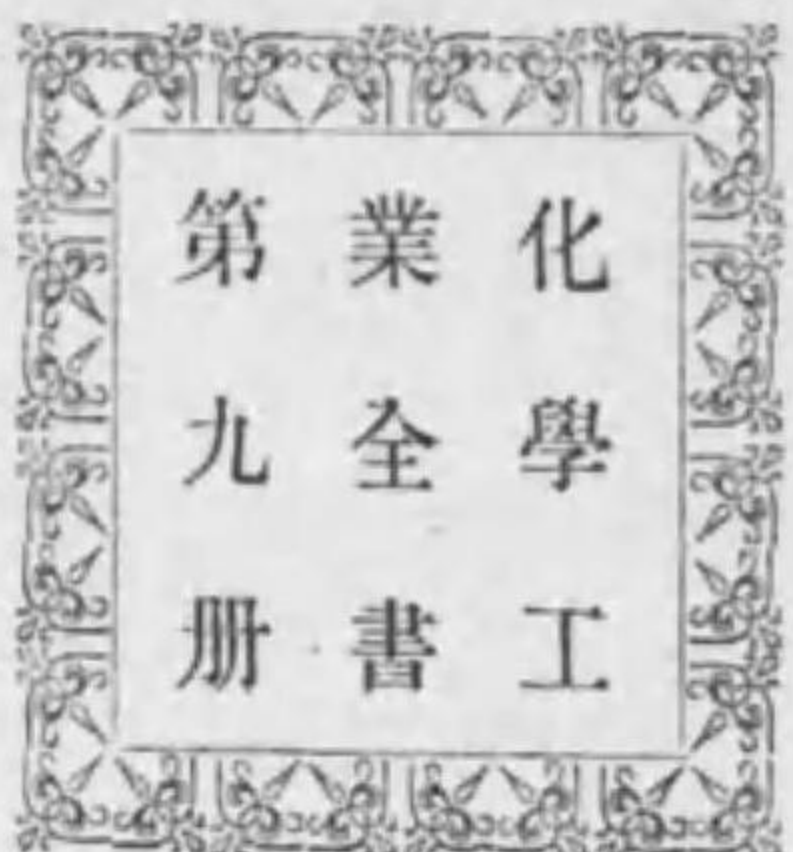 化學工
業全書
第九册